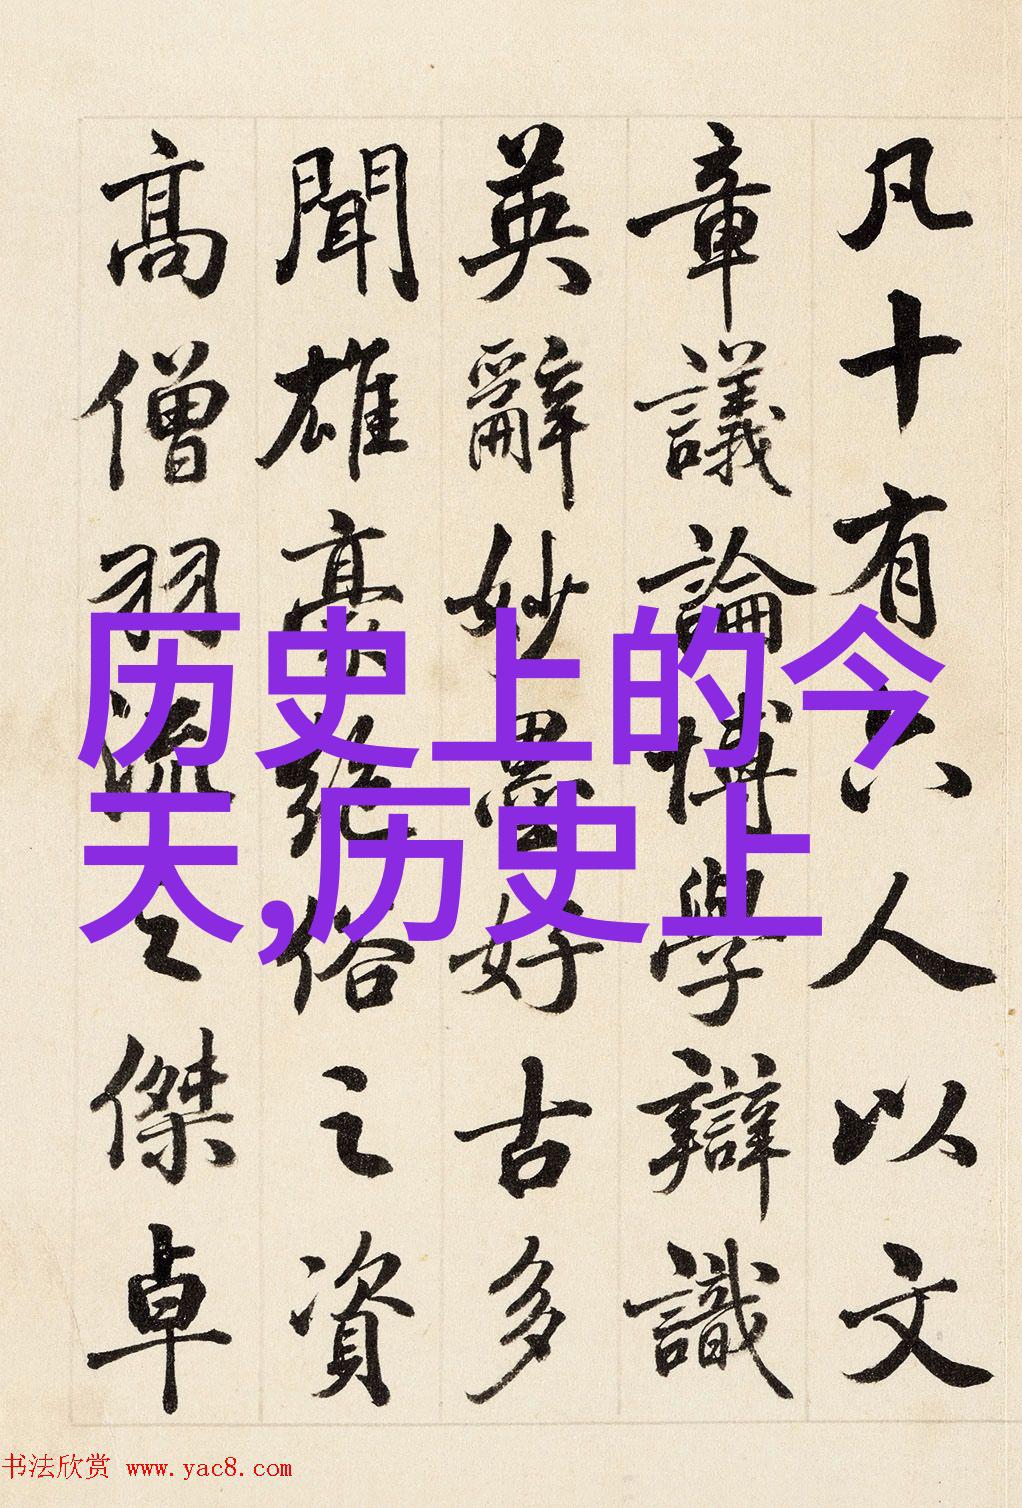 凡十有六人以文
章議論博學辯識
英辭妙墨好古多
聞雄豪絕俗之資
高僧羽流之傑卓
历史上的今
天,历史上
书法欣赏 www.yac8.com